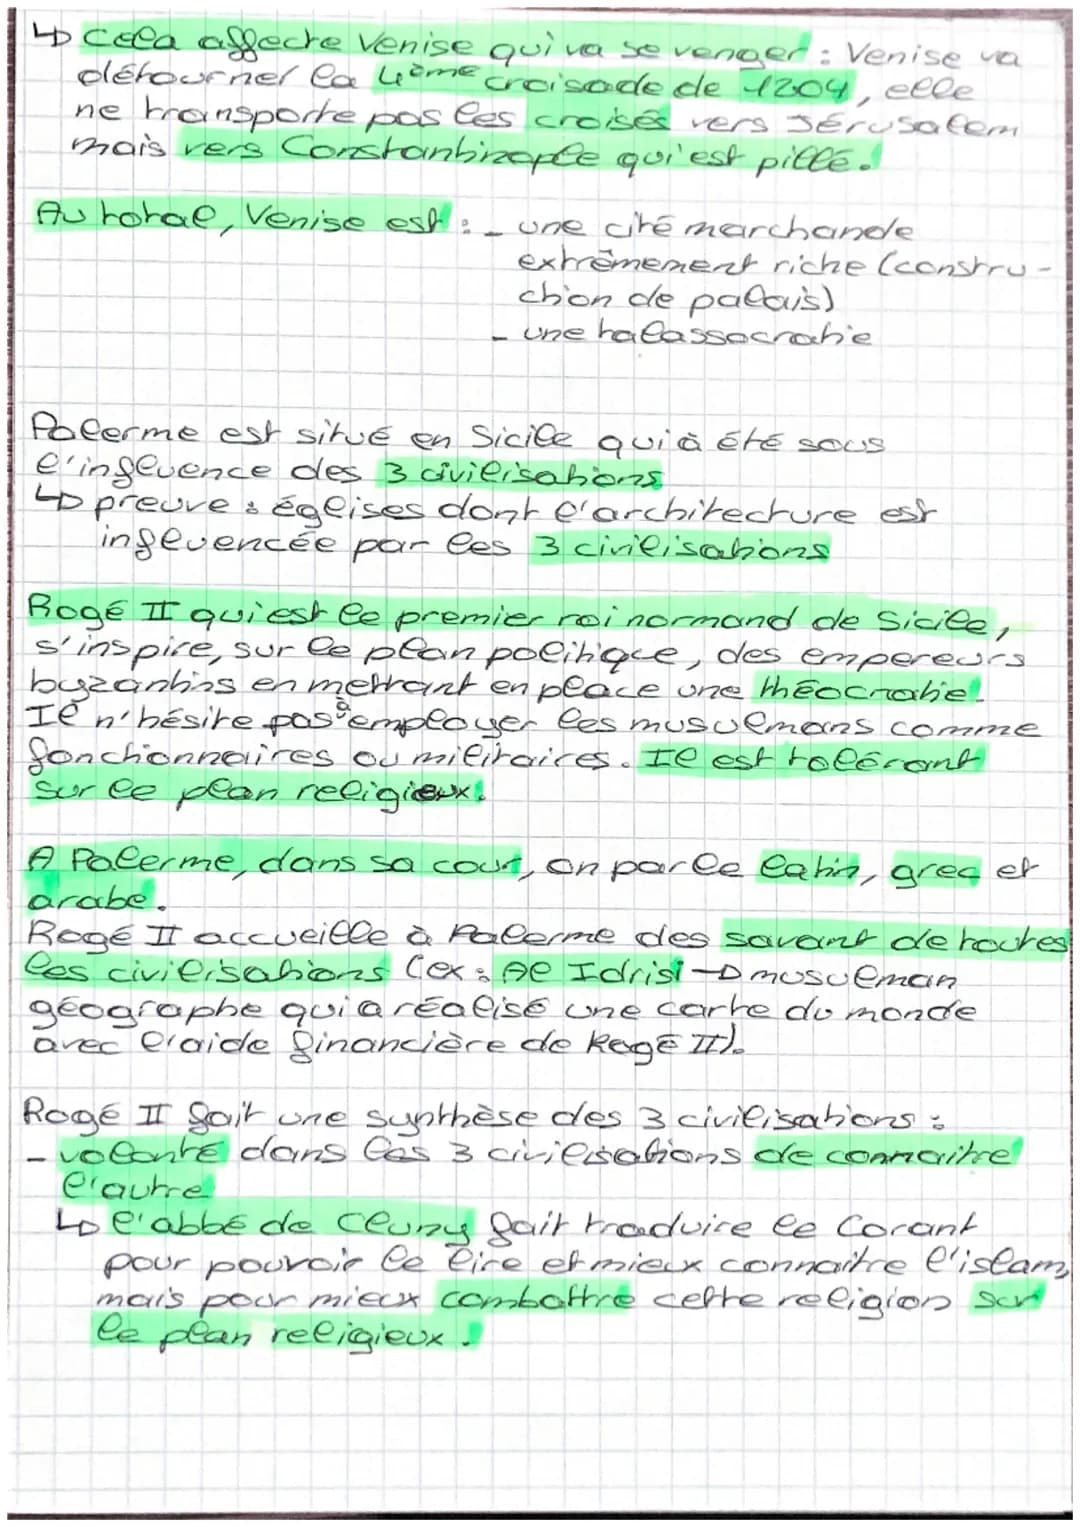 ↳ Cela affecte Venise qui va se venger : Venise va
détourner la 4ème croisade de 1204, elle
ne transporte pas les croisés vers Jérusalem
mais vers Constantinople qui est pillé.
Au total, Venise est : - une cité marchande
extrêmement riche (constru-
ction de palais)
- une talassocratie
Palerme est situé en Sicile qui à été sous
l'influence des 3 civilisations
↳ preuve : églises dont l'architecture est
influencée par les 3 civilisations
Rogé II qui est le premier roi normand de Sicile,
s'inspire, sur le plan politique, des empereurs
byzantins en mettant en place une théocratie.
Il n'hésite pas à employer les musulmans comme
fonctionnaires ou militaires. Il est tolérant
sur le plan religieux.
A Palerme, dans sa cour, on parle latin, grec et
arabe.
Rogé II accueille à Palerme des savant de toutes
les civilisations (ex : Al Idrisi → musulman
géographe qui a réalisé une carte du monde
avec l'aide financière de Rogé II).
Rogé II fait une synthèse des 3 civilisations :
- volonté dans les 3 civilisations de connaitre
l'autre
↳ l'abbé de Cluny fait traduire le Corant
pour pouvoir le lire et mieux connaitre l'islam,
mais pour mieux combattre cette religion sur
le plan religieux.